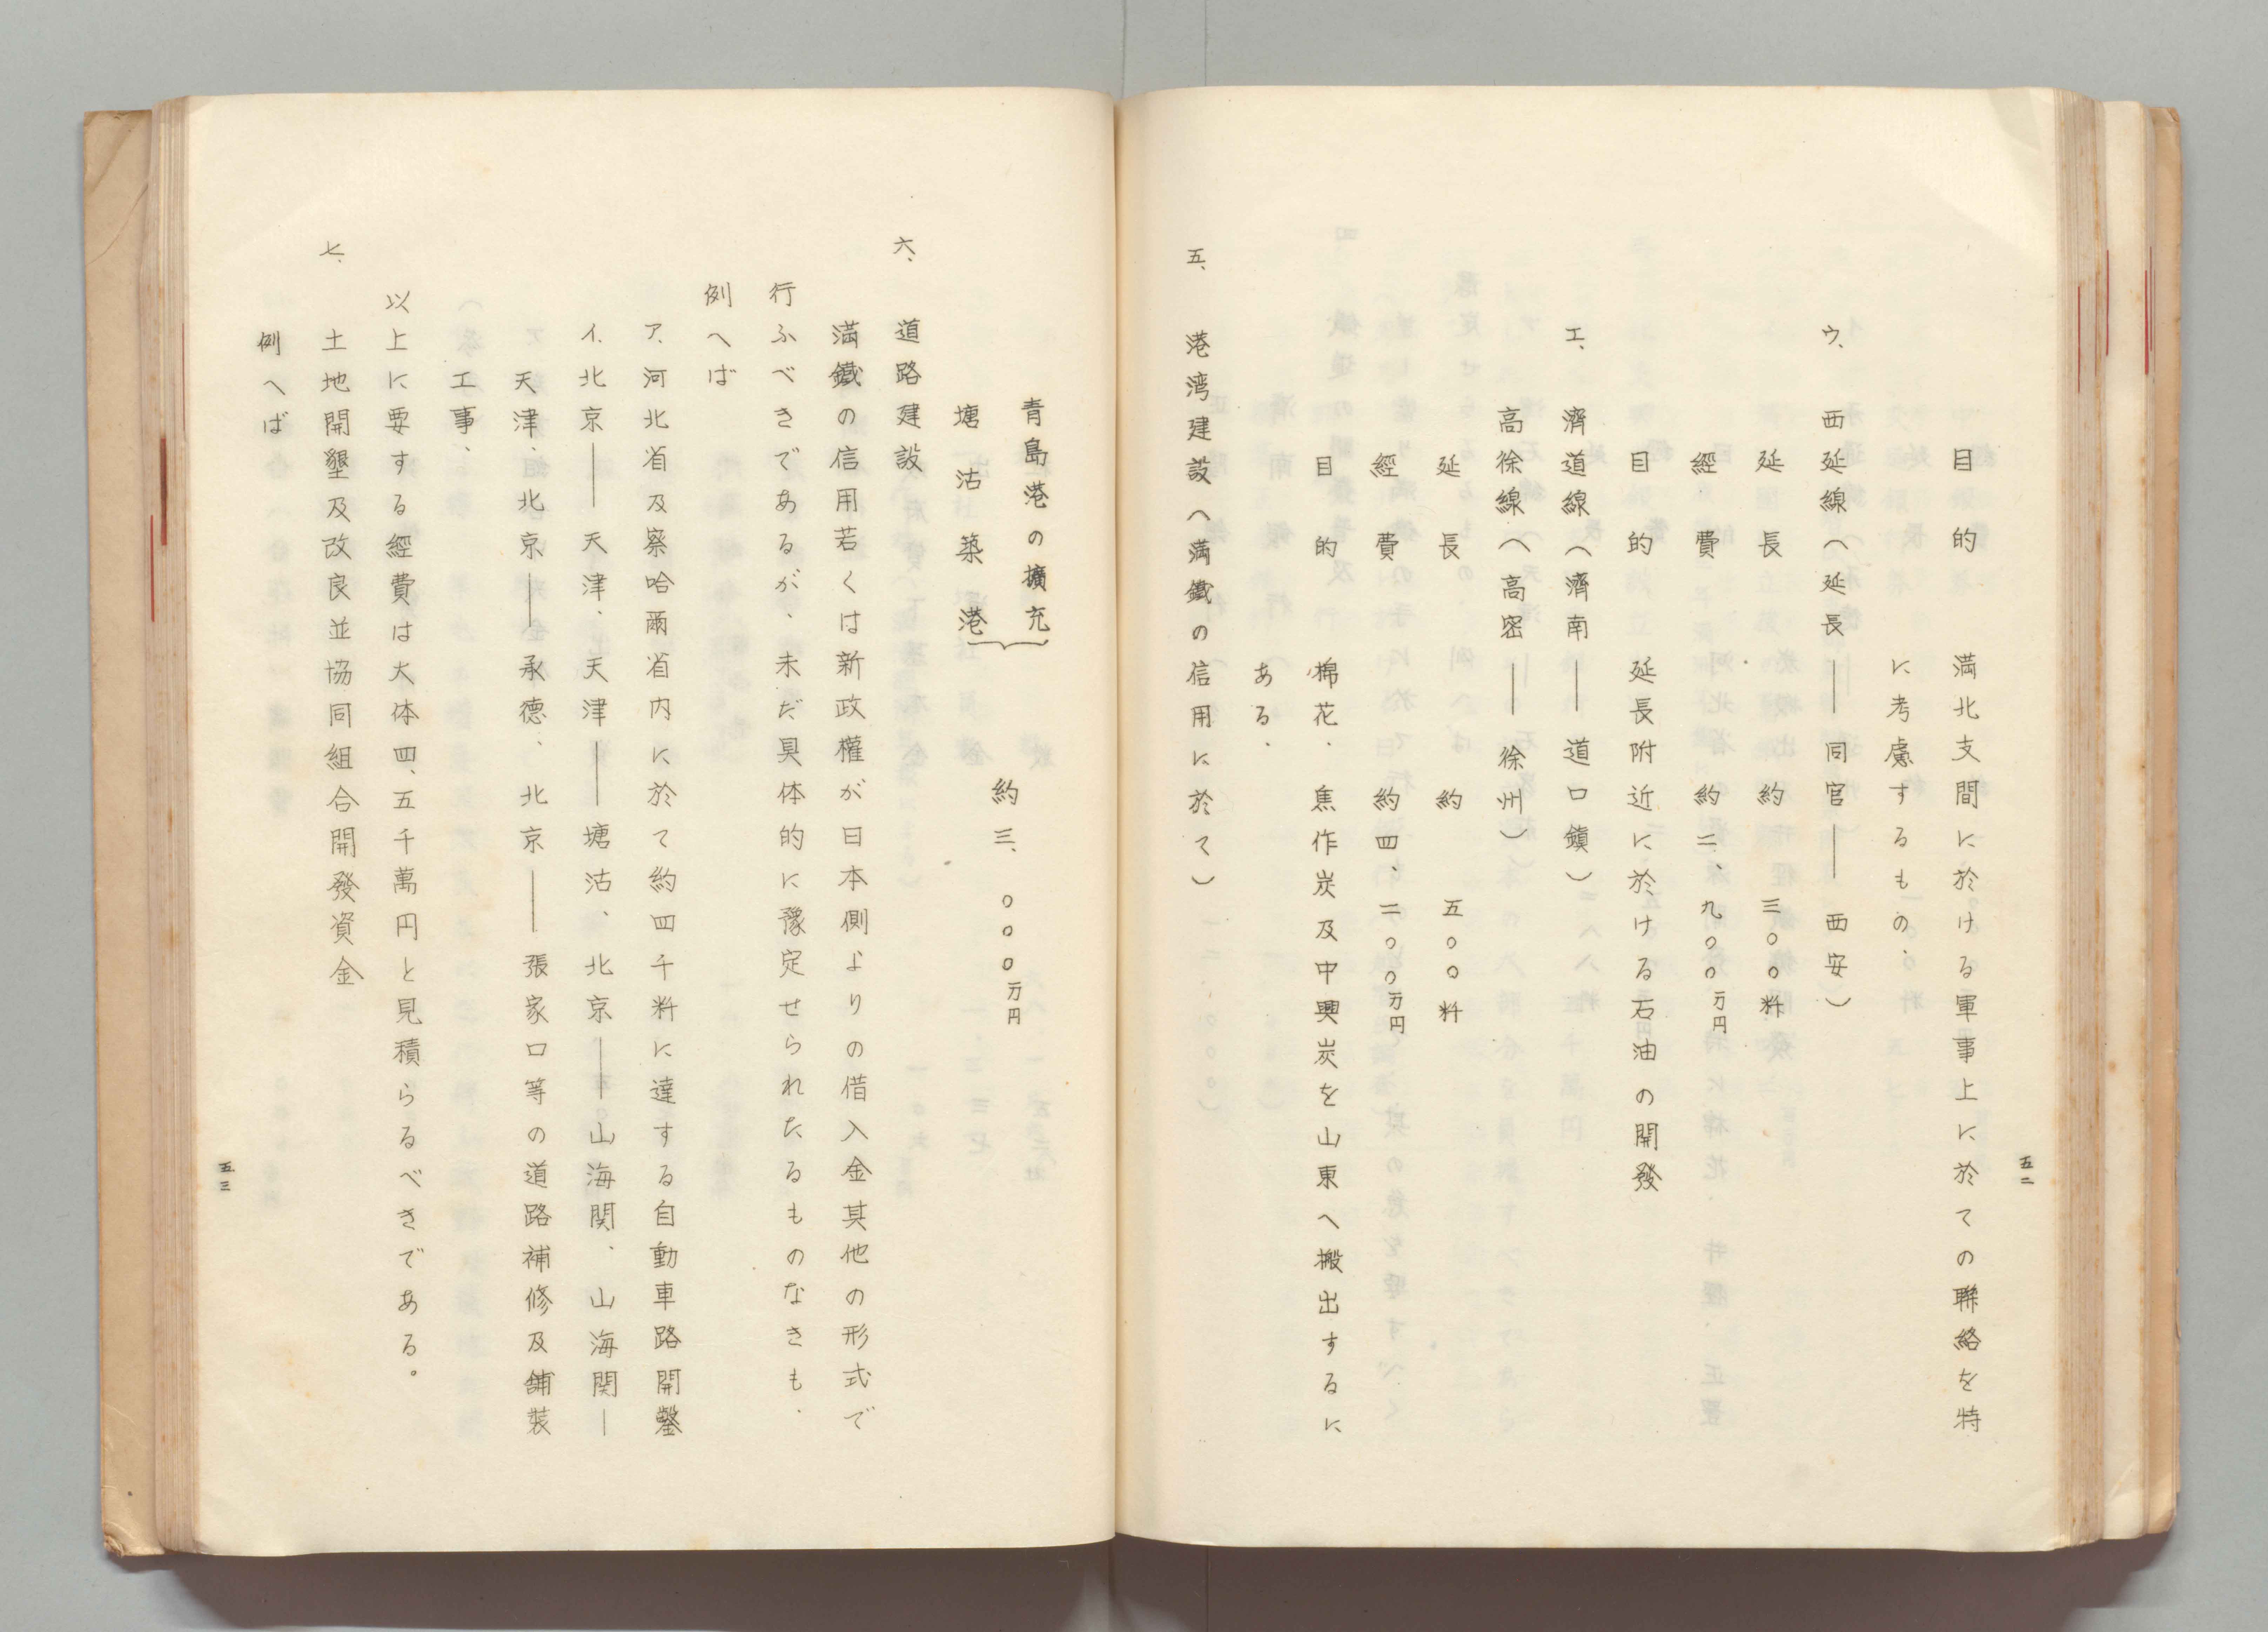 五二
目的　満北支間に於ける軍事上に於ての聯絡を特
に考慮するもの、
ウ、西延線（延長――同官――西安）
延長　約　三〇〇粁
經費　約二、九〇〇万円
目的　延長附近に於ける石油の開發
エ、濟道線（濟南――道口鎮）
高徐線（高密――徐州）
延長　約　五〇〇粁
經費　約四、二〇〇万円
目的　棉花、焦作炭及中興炭を山東へ搬出するに
ある、
五、港湾建設（満鐵の信用に於て）
青島港の擴充
塘沽築港
約三、〇〇〇万円
六、道路建設
満鐵の信用若くは新政權が日本側よりの借入金其他の形式で
行ふべきであるが、未だ具体的に豫定せられたるものなきも、
例へば
ア、河北省及察哈爾省内に於て約四千粁に達する自動車路開鑿
イ、北京――天津、天津――塘沽、北京――山海関、山海関―
天津、北京――承德、北京――張家口等の道路補修及舗装
工事、
以上に要する經費は大体四、五千萬円と見積らるべきである。
七、土地開墾及改良並協同組合開發資金
例へば
五三